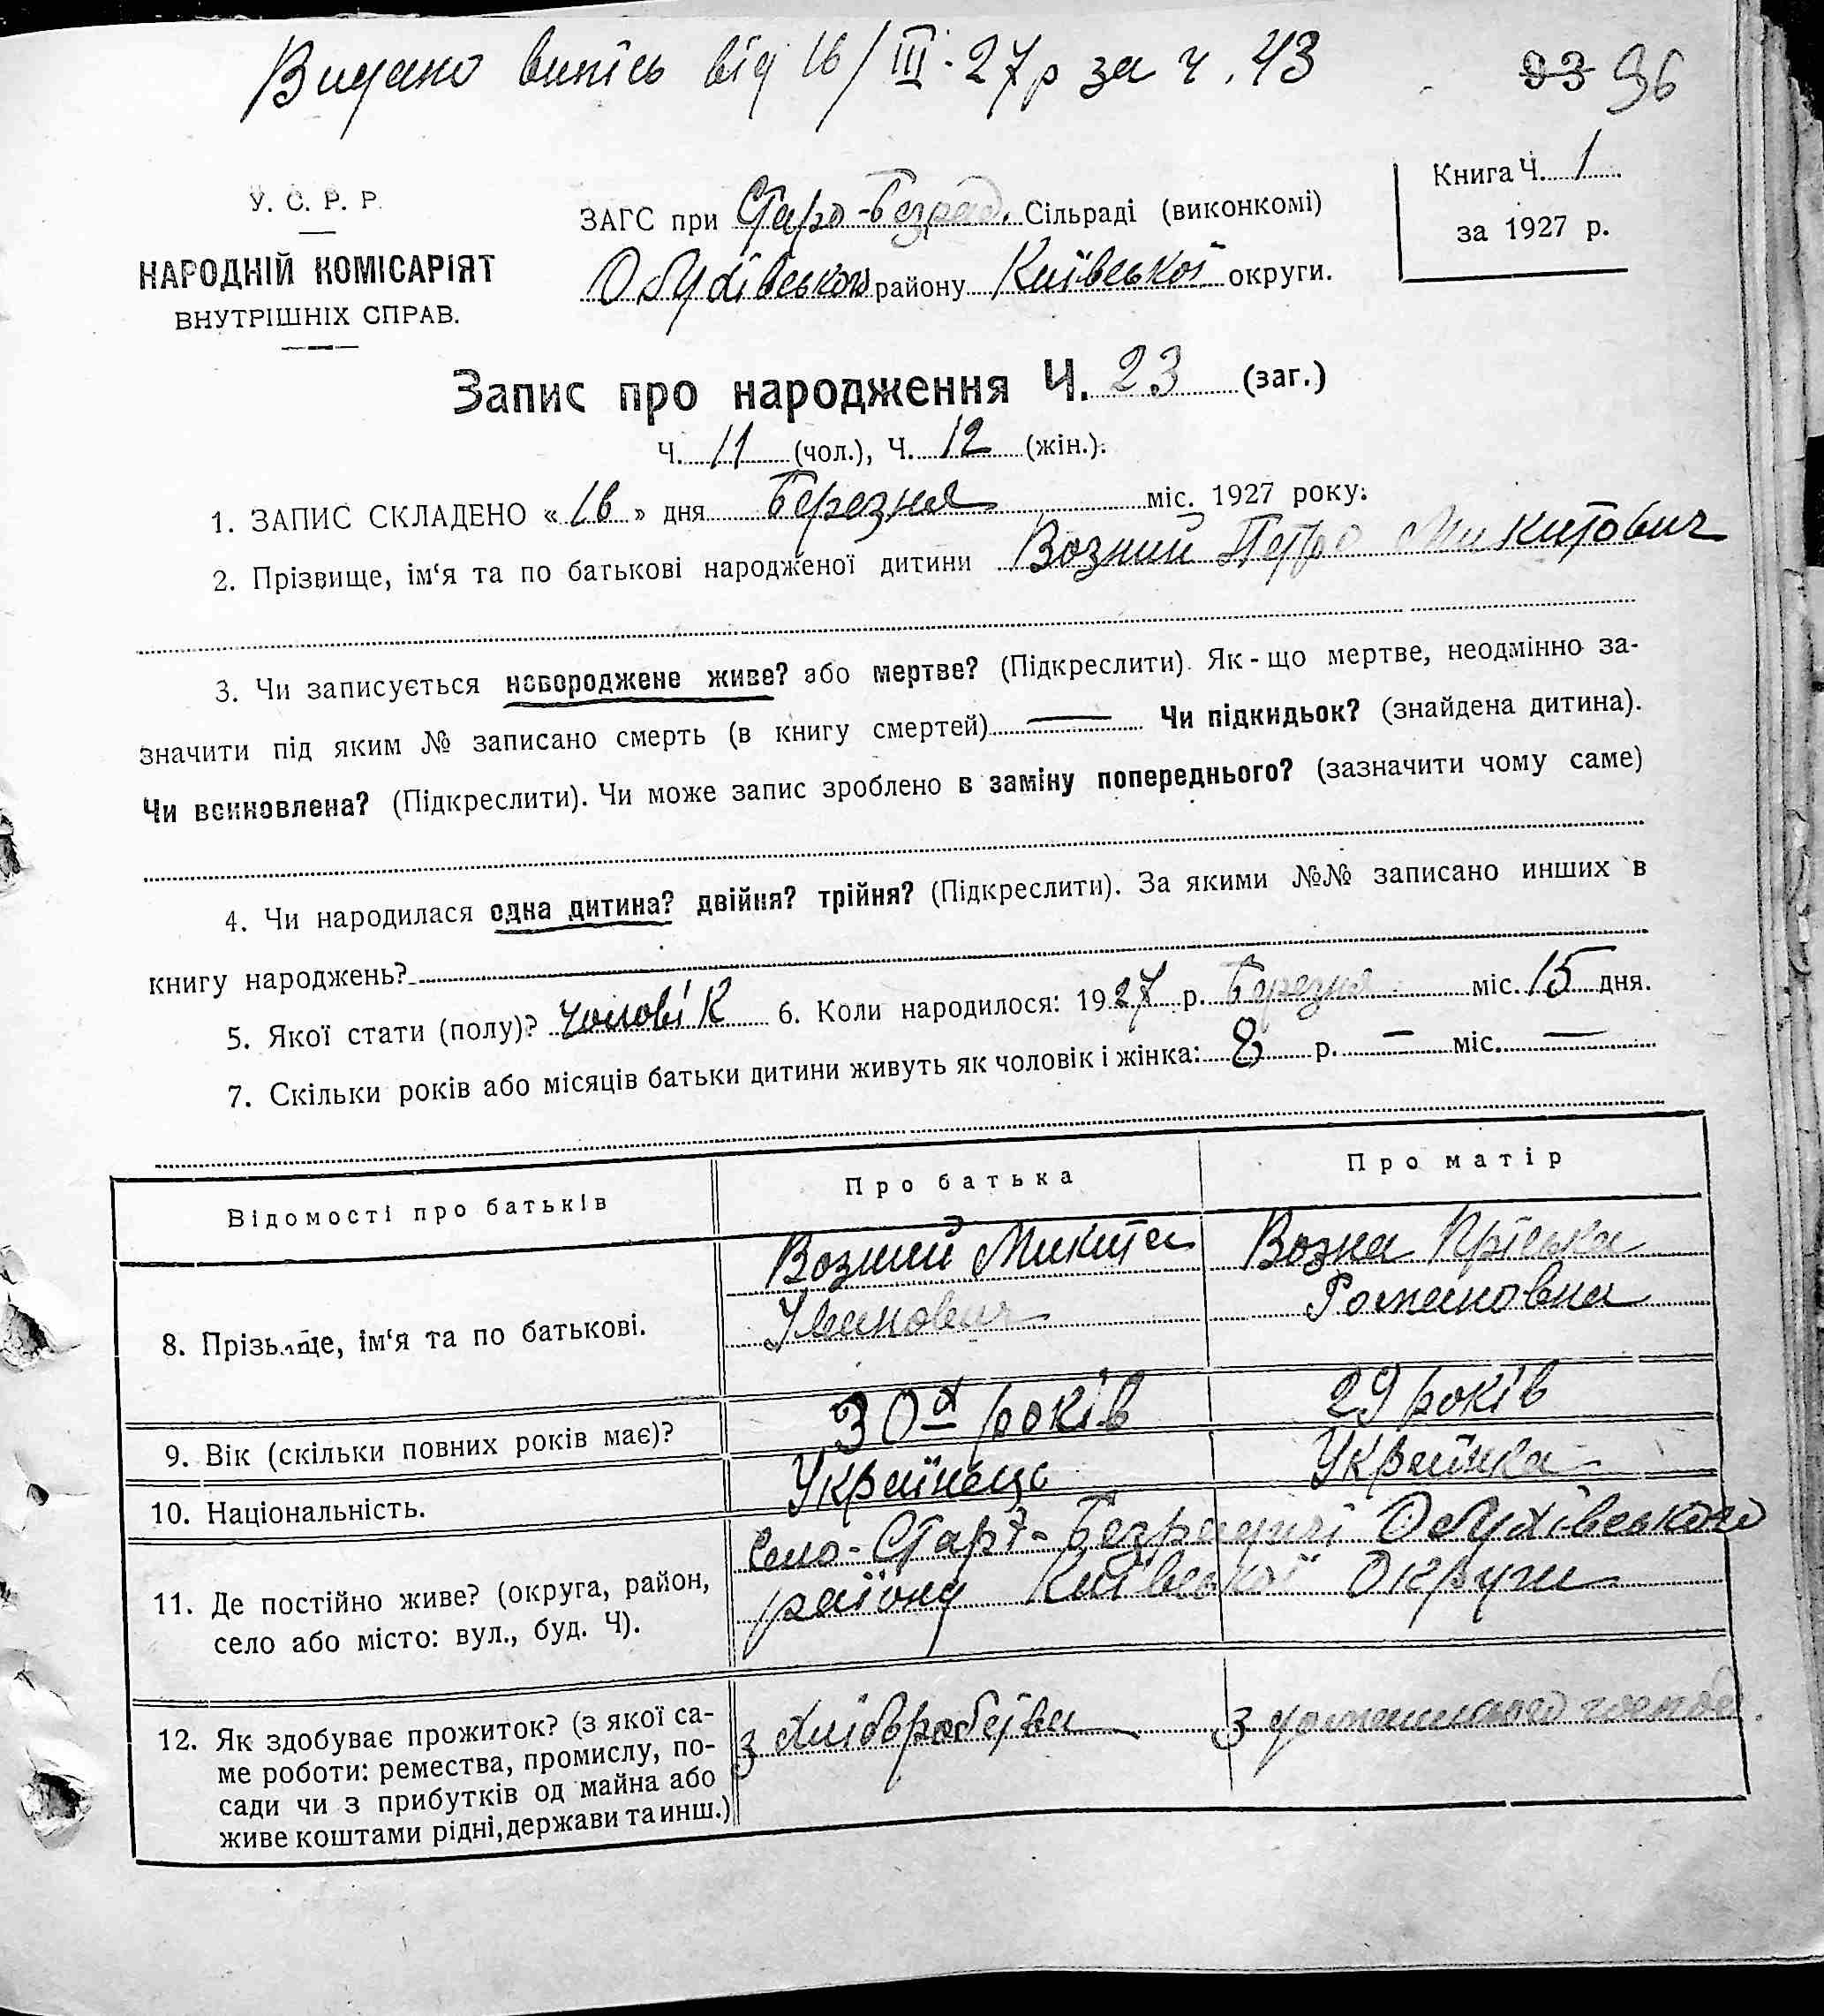 Видано випісь від 16/III-27р за ч. 43
93 96
У. С. Р. Р.
НАРОДНІЙ КОМІСАРІЯТ
ВНУТРІШНІХ СПРАВ.
ЗАГС при Старо-Безрад. Сільраді (виконкомі)
Обухівського району Київської округи.
Книга Ч. 1
за 1927 р.
Запис про народження Ч. 23 (заг.)
Ч. 11 (чол.), Ч. 12 (жін.).
1. ЗАПИС СКЛАДЕНО «16» дня Березня міс. 1927 року.
2. Прізвище, ім‘я та по батькові народженої дитини Возний Петро Микитович
3. Чи записується новороджене живе? або мертве? (Підкреслити). Як-що мертве, неодмінно за-
значити під яким № записано смерть (в книгу смертей) — Чи підкидьок? (знайдена дитина).
Чи всиновлена? (Підкреслити). Чи може запис зроблено в заміну попереднього? (зазначити чому саме)
4. Чи народилася одна дитина? двійня? трійня? (Підкреслити). За якими №№ записано инших в
книгу народжень?
5. Якої стати (полу)? Чоловік 6. Коли народилося: 1927 р. Березня міс. 15 дня.
7. Скільки років або місяців батьки дитини живуть як чоловік і жінка: 8 р. — міс. —
Відомості про батьків
Про батька
Про матір
8. Прізвище, ім‘я та по батькові.
Возний Микита
Іванович
Возна Пріська
Романовна
9. Вік (скільки повних років має)?
30 років
29 років
10. Національність.
Українець
Українка
11. Де постійно живе? (округа, район,
село або місто: вул., буд. Ч).
село-Старі-Безрадичі Обухівського
району Київської Округи
12. Як здобуває прожиток? (з якої са-
ме роботи: ремества, промислу, по-
сади чи з прибутків од майна або
живе коштами рідні, держави та инш.)
з хлібробства
з домашнього господ.